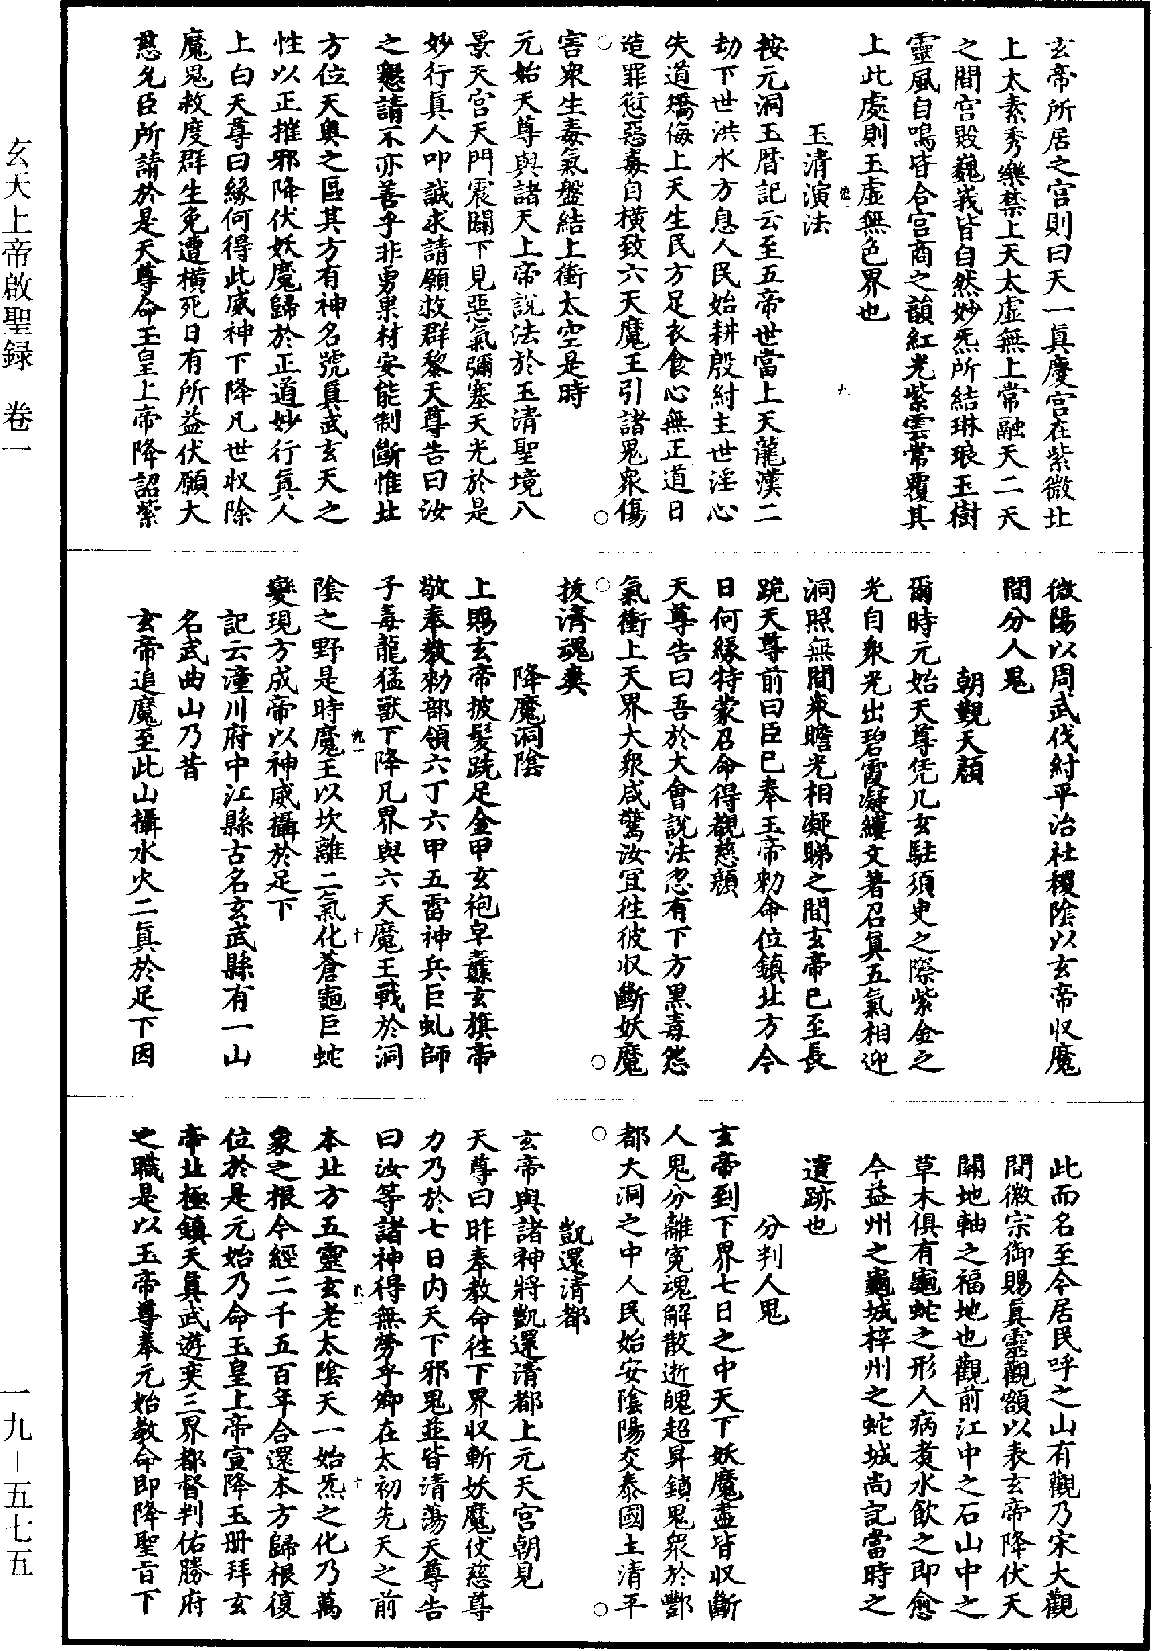 玄帝所居之宫則曰天一真慶宫在紫微北
上太素秀樂禁上天太虚無上常融天二天
之間宫殿巍峩皆自然妙炁所結琳琅玉樹
靈風自鳴皆合宫商之韻紅光紫雲常覆其
上此處則玉虚無色界也
玉清演法
按元洞玉曆記云至五帝世當上天龍漢二
劫下世洪水方息人民始耕殷紂主世淫心
失道矯侮上天生民方足衣食心無正道日
造罪愆惡毒自橫致六天魔王引諸鬼衆傷
害衆生毒氣盤結上衝太空是時
元始天尊與諸天上帝説法於玉清聖境八
景天宫天門震闢下見惡氣彌塞天光於是
妙行真人叩誠求請願救群黎天尊告曰汝
之懇請不亦善乎非勇果材安能制斷惟北
方位天奥之區其方有神名號真武玄天之
性以正摧邪降伏妖魔歸於正道妙行真人
上白天尊曰緣何得此威神下降凡世收除
魔鬼救度群生免遭橫死日有所益伏願大
慈允臣所請於是天尊命玉皇上帝降詔紫
微陽以周武伐紂平治社稷陰以玄帝收魔
間分人鬼
朝覲天顔
爾時元始天尊凭几玄駐須臾之際紫金之
光自衆光出碧霞凝縷文著召真五氣相迎
洞照無間衆瞻光相凝睇之間玄帝已至長
跪天尊前曰臣已奉玉帝勅命位鎮北方今
日何緣特蒙召命得覩慈顔
天尊告曰吾於大會説法忽有下方黑毒怨
氣衝上天界大衆咸驚汝宜往彼收斷妖魔
拔濟魂爽
降魔洞陰
上賜玄帝披髮跣足金甲玄袍皁纛玄旗帝
敬奉教勅部領六丁六甲五雷神兵巨虬師
子毒龍猛獸下降凡界與六天魔王戰於洞
陰之野是時魔王以坎離二氣化蒼龜巨蛇
變現方成帝以神威攝於足下
記云潼川府中江縣古名玄武縣有一山
名武曲山乃昔
玄帝追魔至此山攝水火二真於足下因
此而名至今居民呼之山有觀乃宋大觀
間徽宗御賜真靈觀額以表玄帝降伏天
關地軸之福地也觀前江中之石山中之
草木俱有龜蛇之形人病煑水飲之即愈
今益州之龜城梓州之蛇城尚記當時之
遺跡也
分判人鬼
玄帝到下界七日之中天下妖魔盡皆收斷
人鬼分離寃魂解散逝魄超昇鎖鬼衆於酆
都大洞之中人民始安陰陽交泰國土清平
凱還清都
玄帝與諸神將凱還清都上元天宫朝見
天尊曰昨奉教命往下界收斬妖魔仗慈尊
力乃於七日内天下邪鬼並皆清蕩天尊告
曰汝等諸神得無勞乎卿在太初先天之前
本北方五靈玄老太陰天一始炁之化乃萬
象之根今經二千五百年合還本方歸根復
位於是元始乃命玉皇上帝宣降玉册拜玄
帝北極鎮天真武遊奕三界都督判佑勝府
之職是以玉帝尊奉元始教命即降聖旨下
玄天上帝啟聖録 卷一
一九－五七五